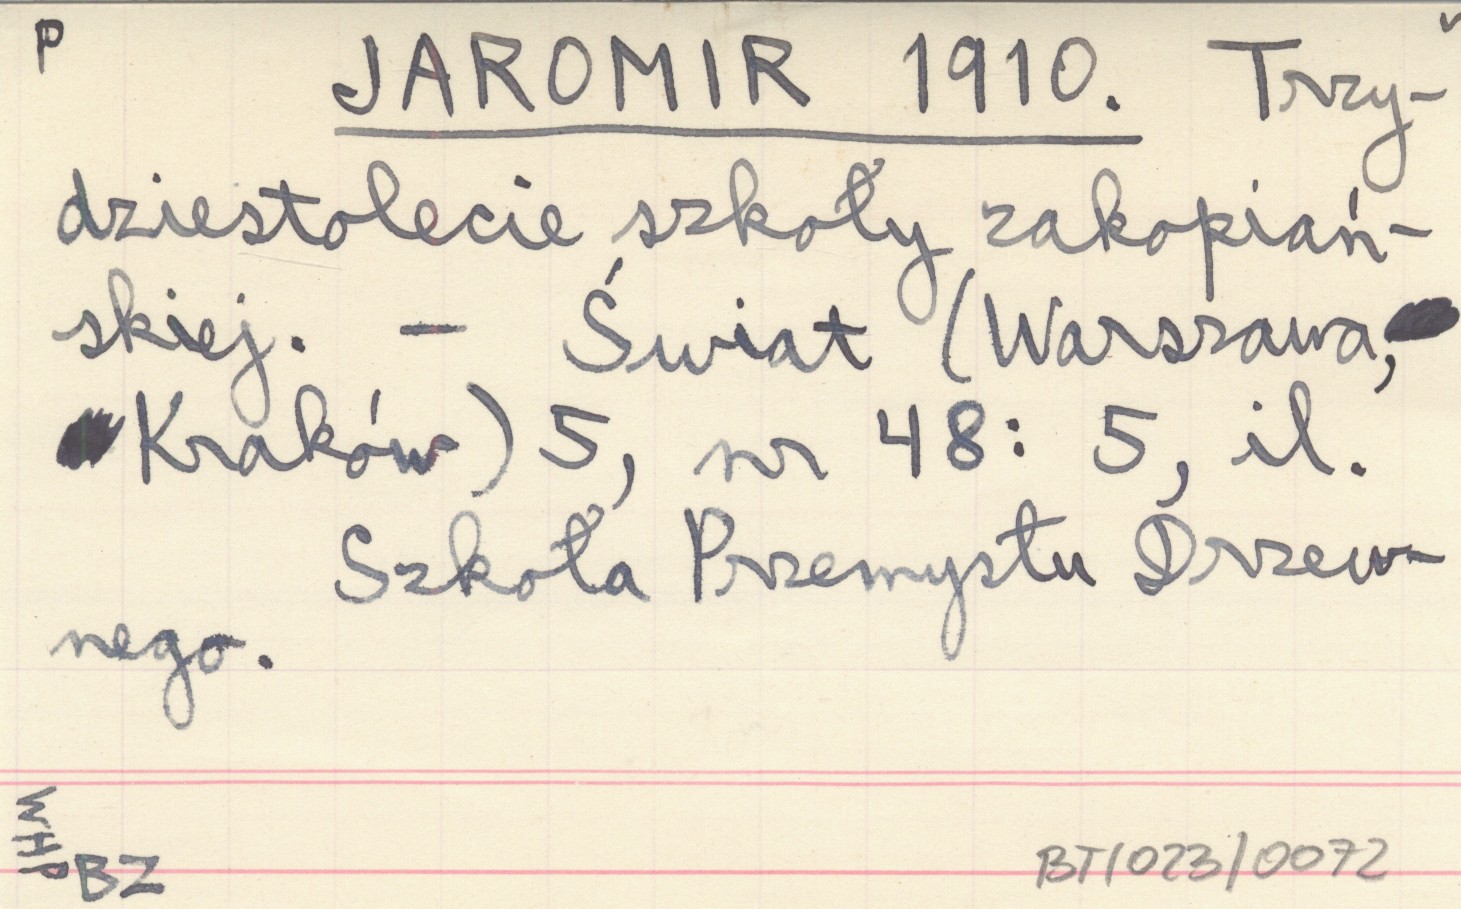 P
JAROMIR 1910. Trzy-
dziestolecie szkoły zakopiań-
skiej. - Świat (Warszawa,
Kraków) 5, nr 48: 5, il.
Szkoła Przemysłu Drzew-
nego.
WHP
BZ
BT/023/0072